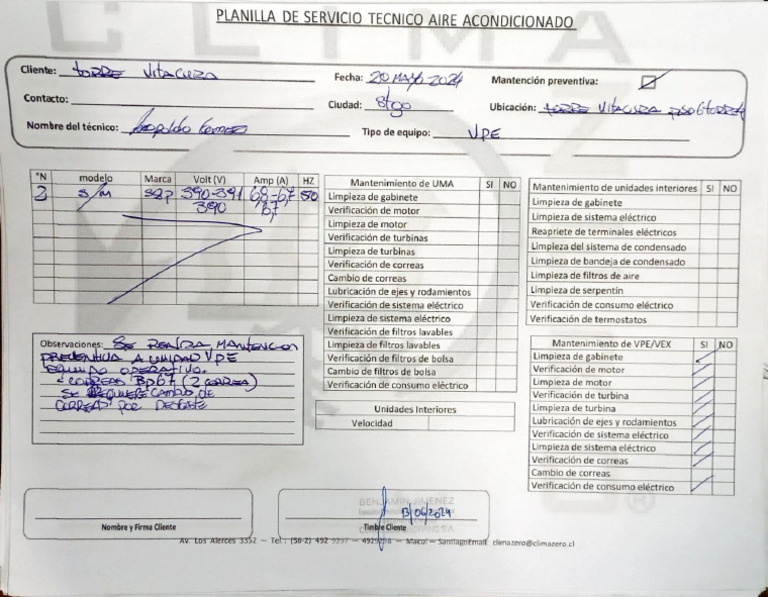 CLIMA
PLANILLA DE SERVICIO TECNICO AIRE ACONDICIONADO
Cliente: TORRE VITACURA
Fecha: 20 MAYO 2024
Mantención preventiva:
Contacto:
Ciudad: Stgo
Ubicación: TORRE VITACURA PISO 6 TORRE A
Nombre del técnico: Leopoldo
Tipo de equipo: VPE
°N modelo Marca Volt (V) Amp (A) HZ
2 S/M S&P 390-391 68-67 50
390 67
Mantenimiento de UMA SI NO
Limpieza de gabinete
Verificación de motor
Limpieza de motor
Verificación de turbinas
Limpieza de turbinas
Verificación de correas
Cambio de correas
Lubricación de ejes y rodamientos
Verificación de sistema eléctrico
Limpieza de sistema eléctrico
Verificación de filtros lavables
Limpieza de filtros lavables
Verificación de filtros de bolsa
Cambio de filtros de bolsa
Verificación de consumo eléctrico
Unidades Interiores
Velocidad
Mantenimiento de unidades interiores SI NO
Limpieza de gabinete
Limpieza de sistema eléctrico
Reapriete de terminales eléctricos
Limpieza del sistema de condensado
Limpieza de bandeja de condensado
Limpieza de filtros de aire
Limpieza de serpentín
Verificación de consumo eléctrico
Verificación de termostatos
Mantenimiento de VPE/VEX SI NO
Limpieza de gabinete
Verificación de motor
Limpieza de motor
Verificación de turbina
Limpieza de turbina
Lubricación de ejes y rodamientos
Verificación de sistema eléctrico
Limpieza de sistema eléctrico
Verificación de correas
Cambio de correas
Verificación de consumo eléctrico
Observaciones: SE REALIZA MANTENCION
PREVENTIVA A UNIDAD VPE
EQUIPO OPERATIVO.
- CORREAS BP67 (2 CORREA)
SE REQUIERE CAMBIO DE
CORREAS POR DESGASTE
Nombre y Firma Cliente
BENJAMIN JIMENEZ
13/06/2024
Timbre Cliente
Av. Los Alerces 3352 – Tel.: (56-2) 492 9297 – 4929298 – Macul – Santiago Email climazero@climazero.cl